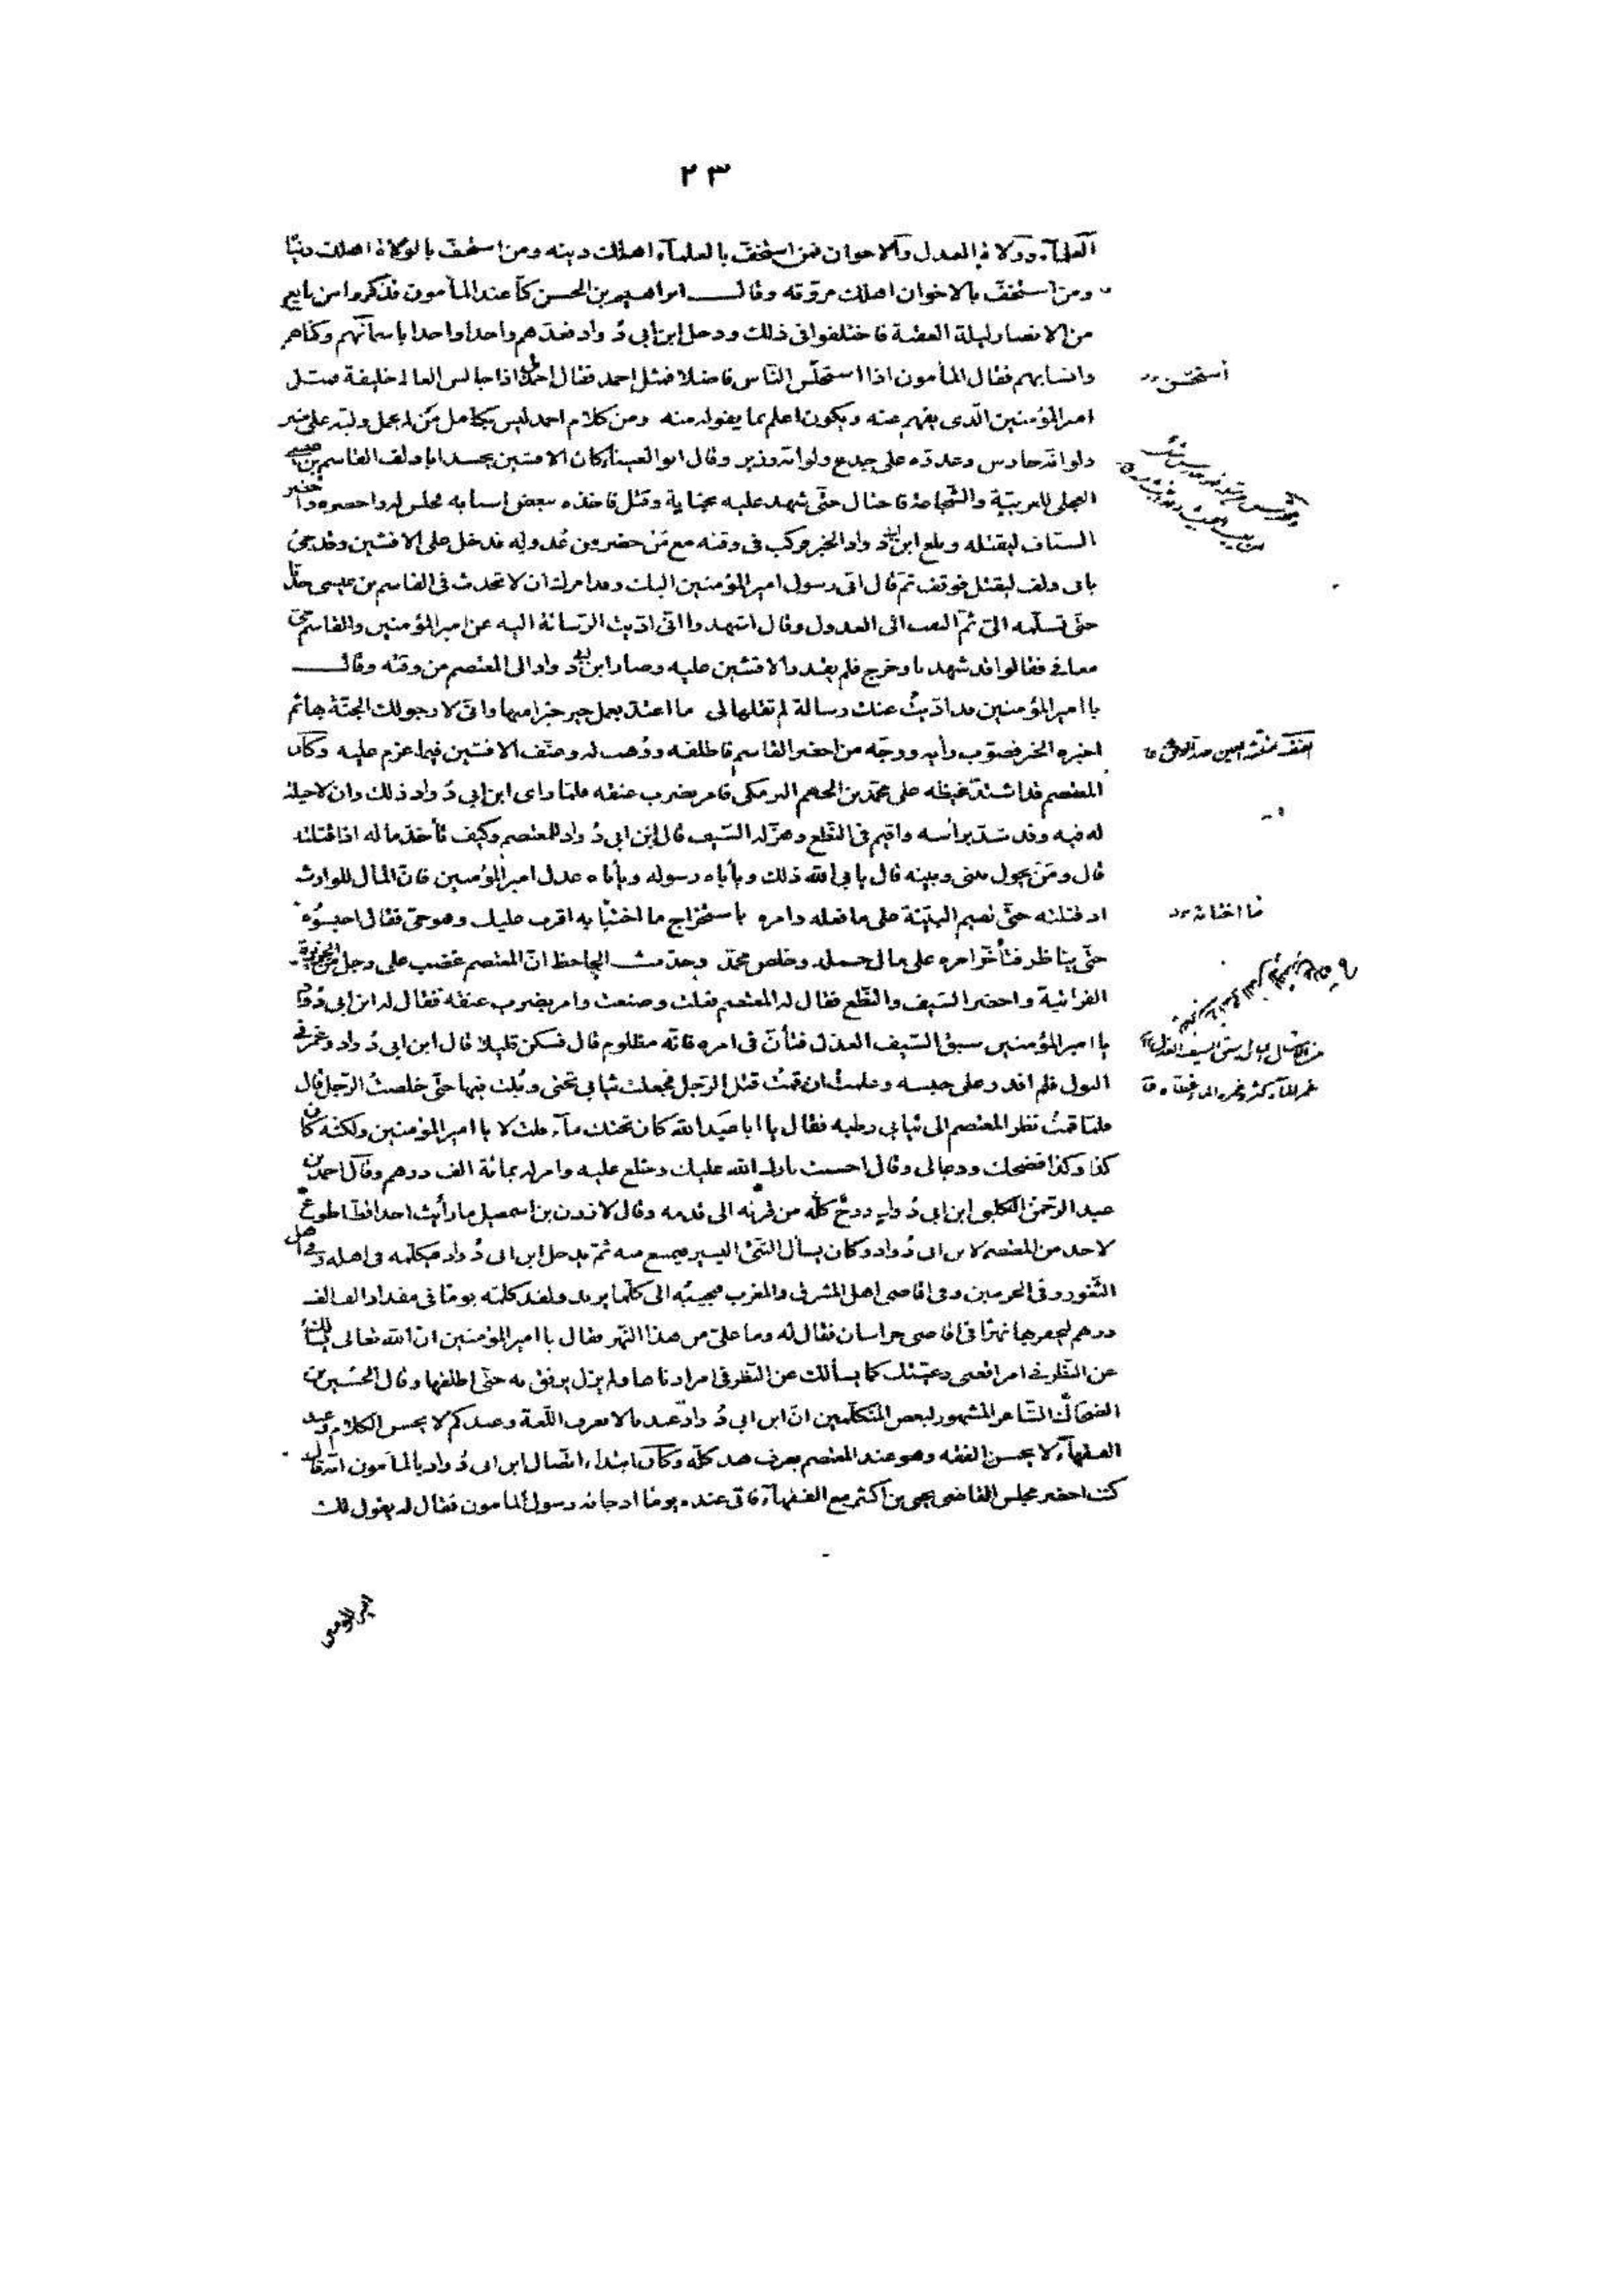 ٢٣
العلماء وولاة العدل والاخوان فمن استخفّ بالعلماء اهلك دينه ومن استخفّ بالولاة اهلك دنياه
ومن استخفّ بالاخوان اهلك مروّته وقال ابراهيم بن الحسن كنّا عند المأمون فذكروا من بايع
من الانصار ليلة العقبة فاختلفوا فى ذلك ودخل ابن ابى دُواد فعدّهم واحدا واحدا باسمآئهم وكناهم
وانسابهم فقال المأمون اذا استجلس النّاس فاضلا فمثل احمد فقال احمد بل اذا جالس العالم خليفة فمثل
امير المؤمنين الّذى يفهم عنه ويكون اعلم بما يقوله منه ومن كلام احمد ليس بكامل من لم يحمل وليّه على منبر
ولو انّه حارس وعدوّه على جذع ولو انّه وزير وقال ابو العيناء كان الافشين يحسد ابا دلف القاسم بن عيسى
العجلى للعربيّة والشّجاعة فاحتال حتّى شهد عليه بجناية وقتل فاخذه ببعض اسبابه فجلس له واحضره واحضر
السيّاف ليقتله وبلغ ابن ابى دُواد الخبر فركب فى وقته مع من حضر من عدوله فدخل على الافشين وقد جئ
بابى دلف ليقتل فوقف ثمّ قال انّى رسول امير المؤمنين اليك وقد امرك ان لا تحدث فى القاسم بن عيسى حدثا
حتّى تسلّمه الىّ ثمّ التفت الى العدول وقال اشهدوا انّى ادّيت الرّسالة اليه عن امير المؤمنين والقاسم حىّ
معافى فقالوا قد شهدنا وخرج فلم يقدر الافشين عليه وصار ابن ابى دُواد الى المعتصم من وقته وقال
يا امير المؤمنين قد ادّيت عنك رسالة لم تقلها لى ما اعتدّ بعمل خير خيرا منها وانّى لارجو لك الجنّة بها ثمّ
اخبره الخبر فصوّب رأيه ووجّه من احضر القاسم فاطلقه ووهب له وعنّف الافشين فيما عزم عليه وكان
المعتصم قد اشتدّ غيظه على محمّد بن الجهم البرمكى فامر بضرب عنقه فلمّا رأى ابن ابى دُواد ذلك وان لا حيلة
له فيه وقد شدّ براسه واقيم فى النّطع وهزّ له السّيف قال ابن ابى دُواد للمعتصم وكيف تأخذ ماله اذا قتلته
قال ومن يحول بينى وبينه قال يابى الله ذلك ويأباه رسوله ويأباه عدل امير المؤمنين فانّ المال للوارث
اذا قتلته حتّى تقيم البيّنة على ما فعله وامره باستخراج ما اختانه اقرب عليك وهو حىّ فقال احبسوه
حتّى يناظر فتأخّر امره على مال حمله وخلص محمّد وحدّث الجاحظ انّ المعتصم غضب على رجل من اهل الجزيرة
الفراتية واحضر السّيف والنّطع فقال له المعتصم فعلت وصنعت وامر بضرب عنقه فقال له ابن ابى دُواد
يا امير المؤمنين سبق السّيف العذل فتأنّ فى امره فانّه مظلوم قال فسكن قليلا قال ابن ابى دُواد وغمزنى
البول فلم اقدر على حبسه وعلمت ان قمت قتل الرّجل فجعلت ثيابى تحتى وبُلت فيها حتّى خلصت الرّجل قال
فلمّا قمت نظر المعتصم الى ثيابى رطبة فقال يا ابا عبد الله كان تحتك مآء فقلت لا يا امير المؤمنين ولكنّه كان
كذا وكذا فضحك ودعا لى وقال احسنت بارك الله عليك وخلع عليه وامر له بمائة الف درهم وقال احمد بن
عبد الرّحمن الكلبى ابن ابى دُواد روح كلّه من قرنه الى قدمه وقال لازون بن اسمعيل ما رأيت احدا قطّ اطوع
لاحد من المعتصم لابن ابى دُواد وكان يسأل الشّئ اليسير فيمتنع منه ثمّ يدخل ابن ابى دُواد فيكلّمه فى اهله وفى اهل
الثّغور وفى الحرمين وفى اقاصى اهل المشرق والمغرب فيجيبه الى كلّما يريد ولقد كلّمه يوما فى مقدار الف الف
درهم ليحفر بها نهرا فى اقاصى خراسان فقال له وما علىّ من هذا النّهر فقال يا امير المؤمنين انّ الله تعالى يسألك
عن النّظر فى امر اقصى رعيّتك كما يسألك عن النّظر فى امر ادناها ولم يزل يرفق به حتّى اطلقها وقال الحسين بن
الضحّاك الشّاعر المشهور لبعض المتكلّمين انّ ابن ابى دُواد عندنا لا يعرف اللّغة وعندكم لا يحسن الكلام وعند
الفقهآء لا يحسن الفقه وهو عند المعتصم يعرف هذا كلّه وكان ابتداء اتّصال ابن ابى دُواد بالمأمون انّه قال
كنت احضر مجلس القاضى يحيى بن اكثم مع الفقهآء فانّى عنده يوما اذ جاءه رسول المأمون فقال له يقول لك
امير المؤمنين
ما اختانه